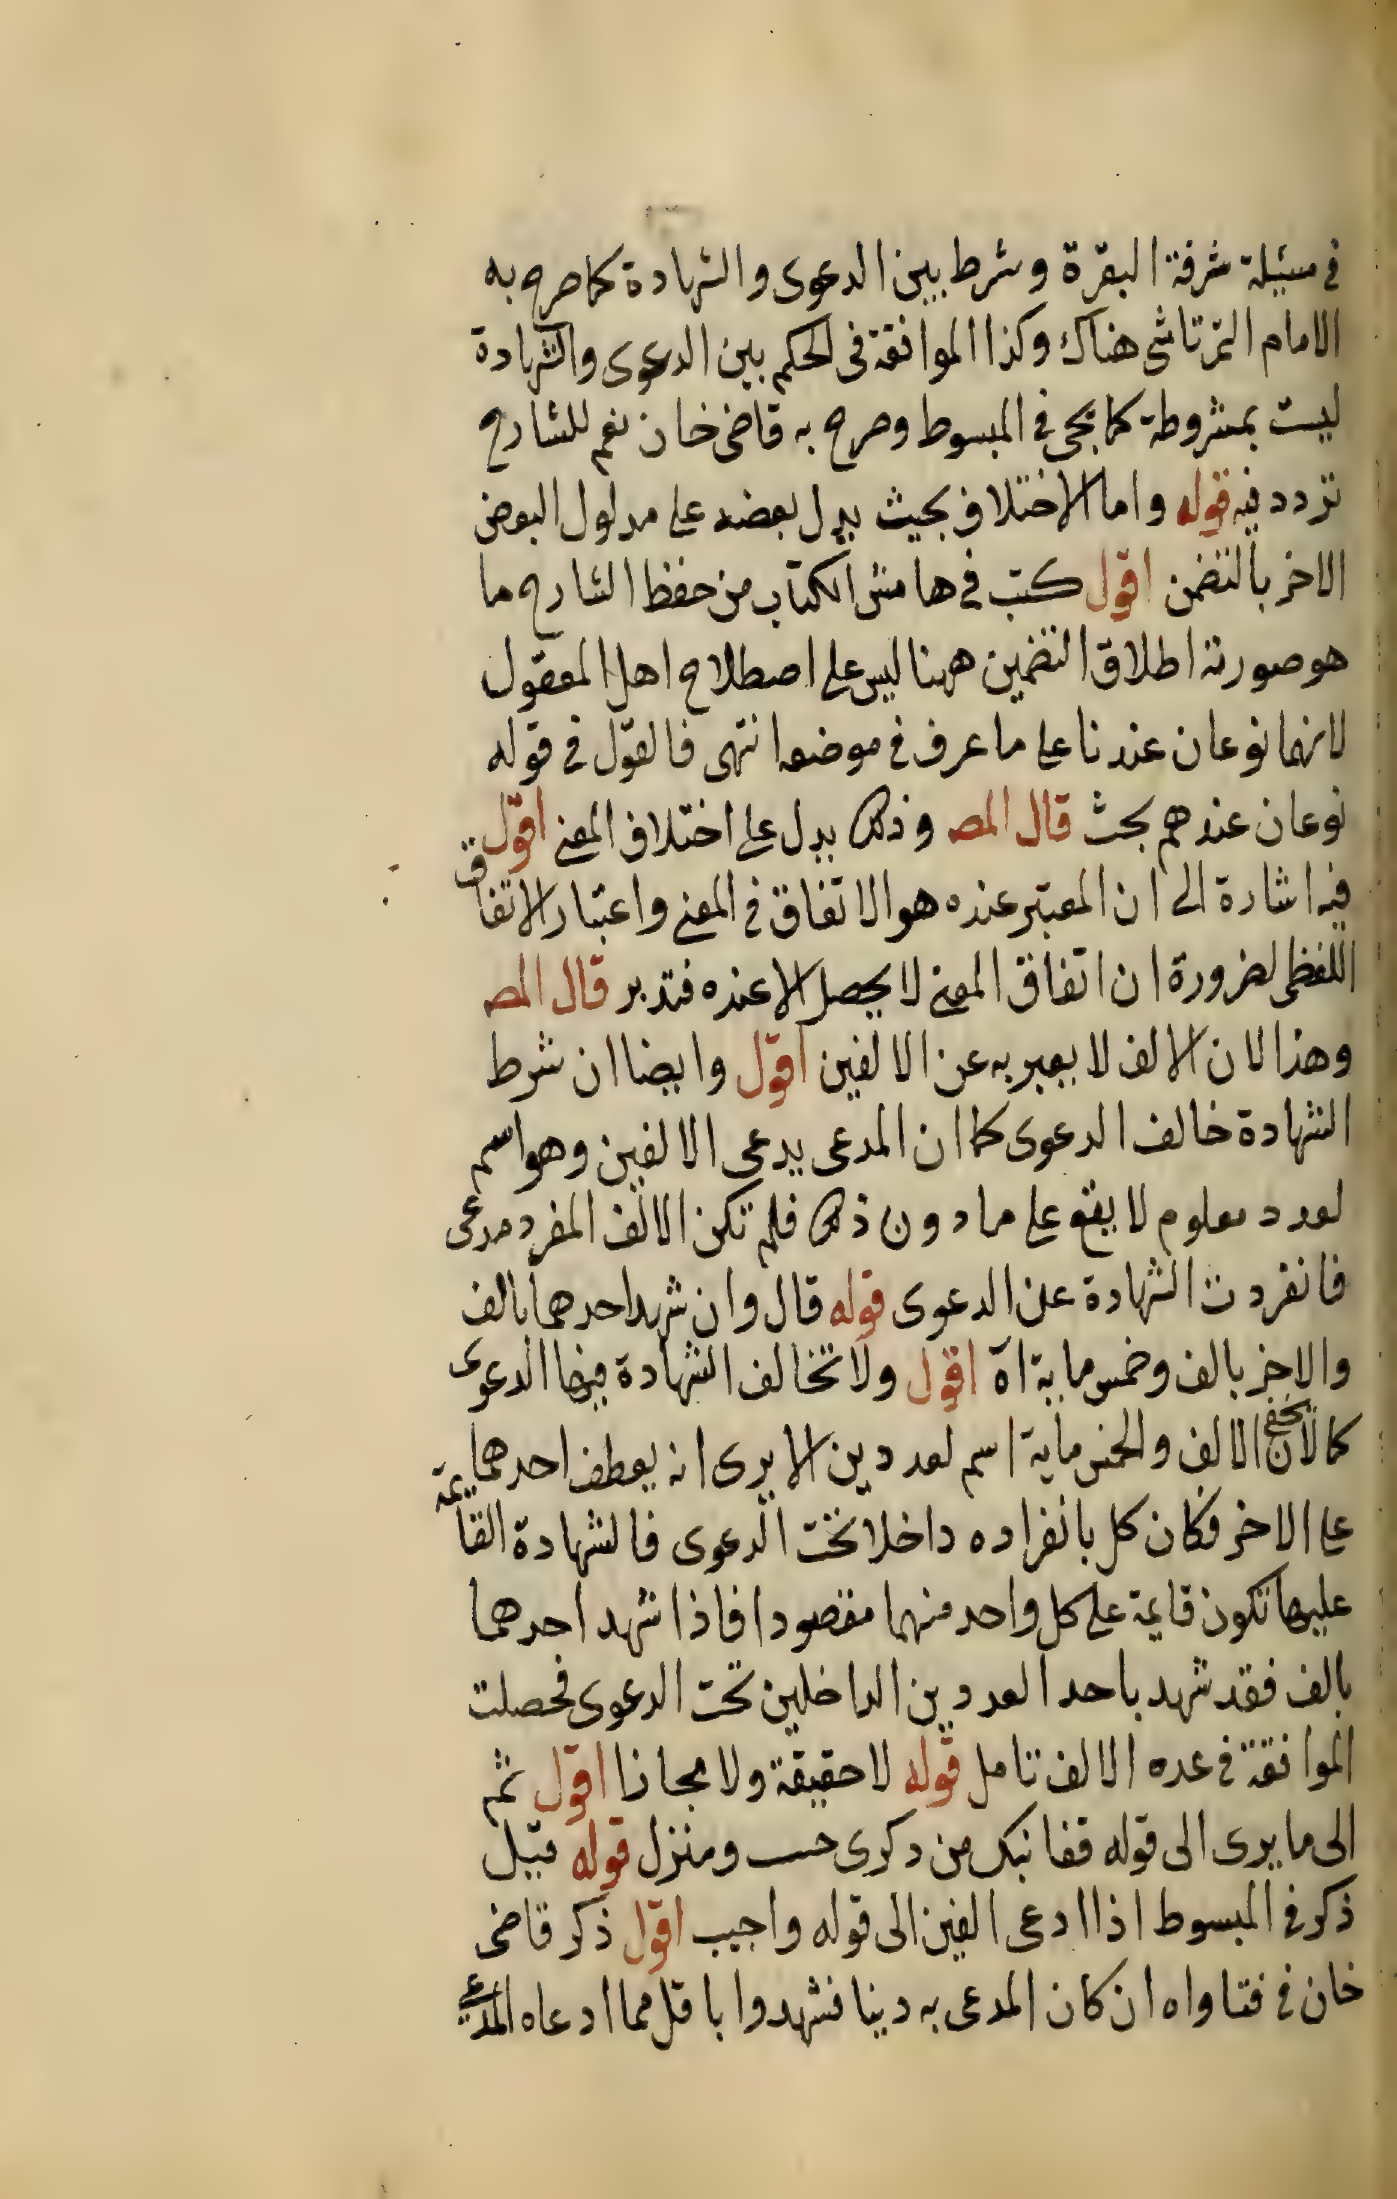 في مسئلة سرقة البقرة وشرط بين الدعوى والشهادة كما صرح به
الامام التمرتاشى هناك وكذا الموافقة فى الحكم بين الدعوى والشهادة
ليست بمشروطة كما يجى فى المبسوط وصرح به قاضى خان نعم للشارح
تردد فيه قوله واما الاختلاف بحيث يدل بعضه على مدلول البعض
الاخر بالتضمن اقول كتب فى هامش الكتاب من حفظ الشارح ما
هو صورته اطلاق التضمين ههنا ليس على اصطلاح اهل المعقول
لانهما نوعان عندنا على ما عرف فى موضعه انتهى فالقول فى قوله
نوعان عندهم بحث قال المصـ وذلك يدل على اختلاف المعنى اقول
فيه اشارة الى ان المعتبر عنده هو الاتفاق فى المعنى واعتبار الاتفاق
اللفظى لضرورة ان اتفاق المعنى لا يحصل الا عنده فتدبر قال المصـ
وهذا لان الالف لا يعبر به عن الالفين اقول وايضا ان شرط
الشهادة خالف الدعوى كما ان المدعى يدعى الالفين وهو اسم
لعدد معلوم لا يقع على ما دون ذلك فلم تكن الالف المفرد مدعى
فانفردت الشهادة عن الدعوى قوله قال وان شهد احدهما بالف
والاخر بالف وخمس ماية اه اقول ولا تخالف الشهادة فيها الدعوى
كما لا يخفى لان الالف والخمس ماية اسم لعددين الا يرى انه يعطف احدهما
على الاخر فكان كل بانفراده داخلا تحت الدعوى فالشهادة القايمة
عليها تكون قايمة على كل واحد منهما مقصودا فاذا شهد احدهما
بالف فقد شهد باحد العددين الداخلين تحت الدعوى فحصلت
الموافقة فى عده الالف تامل قوله لا حقيقة ولا مجازا اقول ثم
الى ما يرى الى قوله قفا نبك من دكرى حسب ومنزل قوله قيل
ذكر فى المبسوط اذا ادعى الفين الى قوله واجيب اقول ذكر قاضى
خان فى فتاواه ان كان المدعى به دينا فشهدوا باقل مما ادعاه المدعى